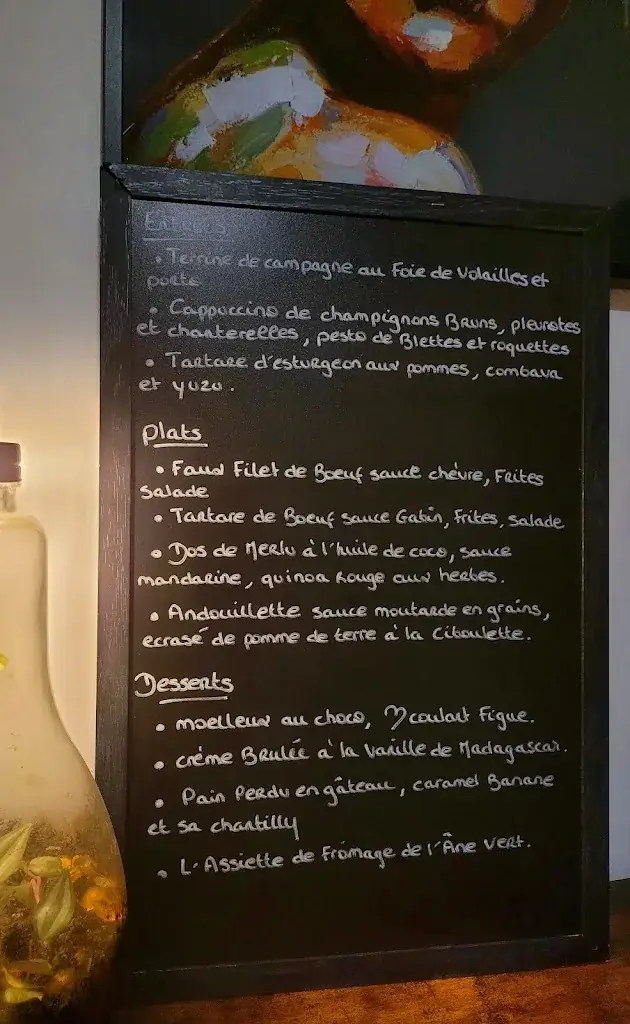 Entrées
• Terrine de campagne au Foie de Volailles et
porto
• Cappuccino de champignons Bruns, pleurotes
et chanterelles, pesto de Blettes et roquettes
• Tartare d'esturgeon aux pommes, combava
et yuzu.
Plats
• Faux Filet de Boeuf sauce chèvre, Frites
Salade
• Tartare de Boeuf sauce Gabin, Frites, salade
• Dos de Merlu à l'huile de coco, sauce
mandarine, quinoa Rouge aux herbes.
• Andouillette sauce moutarde en grains,
ecrasé de pomme de terre à la Ciboulette.
Desserts
• moelleux au choco, ♡ coulant Figue.
• crème Brulée à la Vanille de Madagascar.
• Pain Perdu en gâteau, caramel Banane
et sa chantilly
• L'Assiette de fromage de l'Âne Vert.